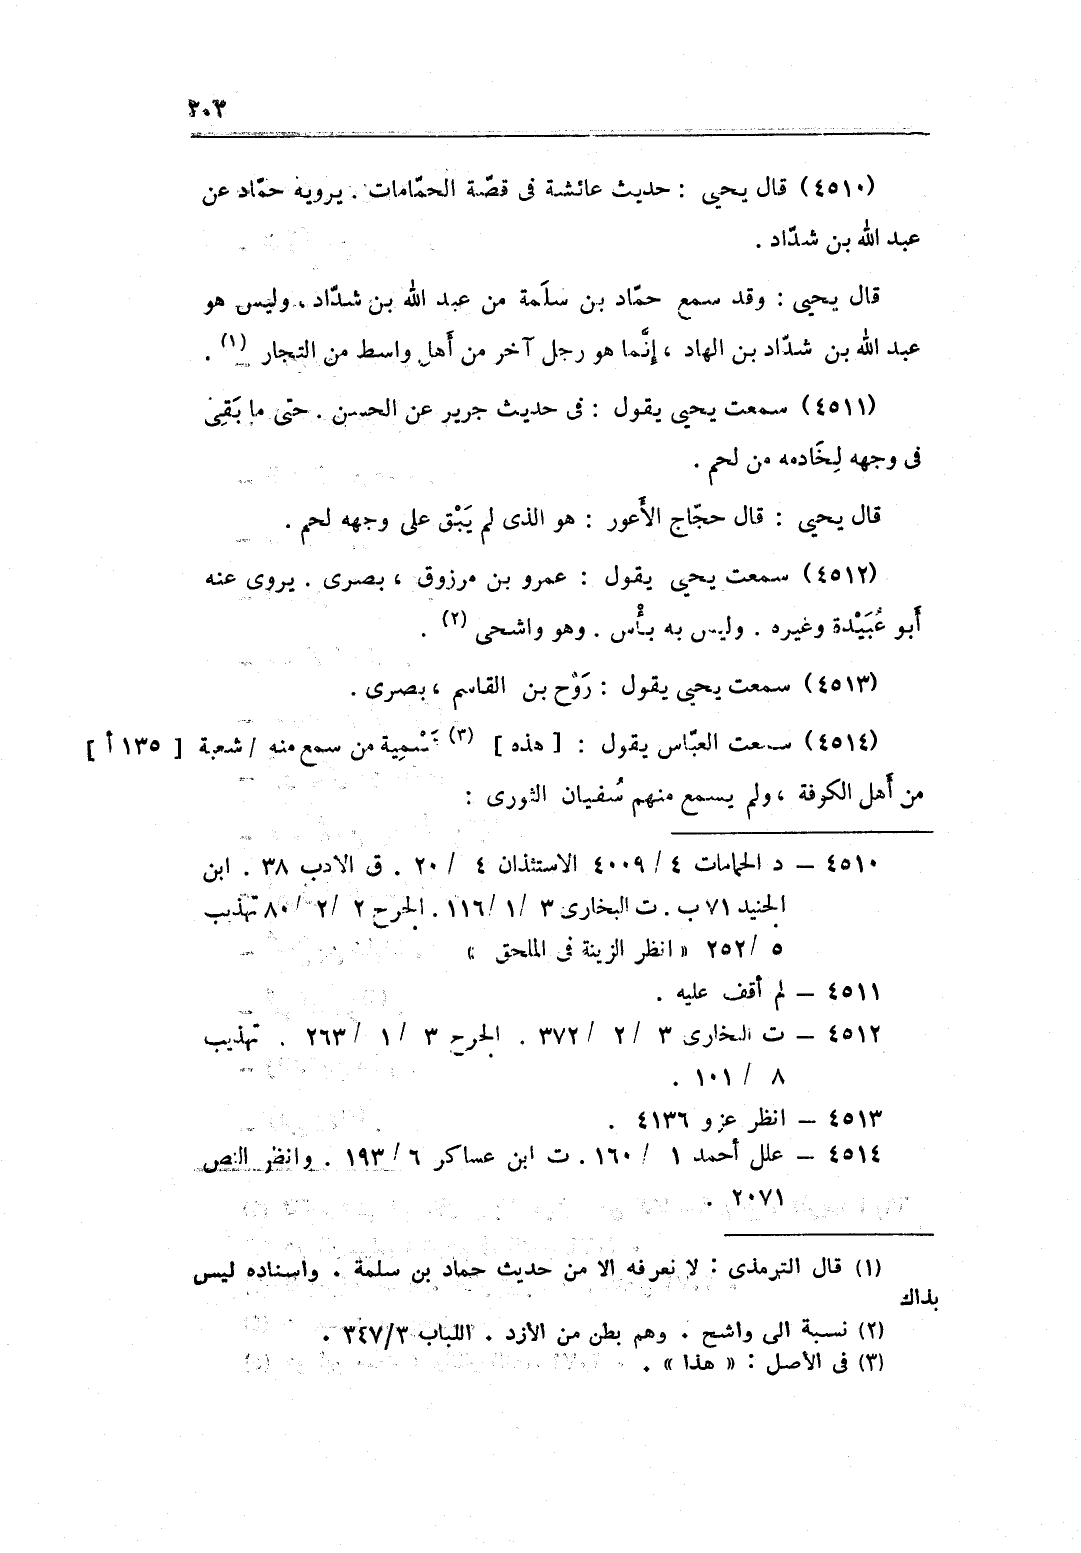 ٣٠٣
(٤٥١٠) قال يحيى : حديث عائشة فى قصّة الحمّامات . يرويه حمّاد عن
عبد الله بن شدّاد .
قال يحيى : وقد سمع حمّاد بن سلَمة من عبد الله بن شدّاد ، وليس هو
عبد الله بن شدّاد بن الهاد ، إنَّما هو رجل آخر من أَهل واسط من التجار (١) .
(٤٥١١) سمعت يحيى يقول : فى حديث جرير عن الحسن . حتى ما بَقِىَ
فى وجهه لِخَادمه من لحم .
قال يحيى : قال حجّاج الأَعور : هو الذى لم يَبْق على وجهه لحم .
(٤٥١٢) سمعت يحيى يقول : عمرو بن مرزوق ، بصرى . يروى عنه
أَبو عُبَيْدة وغيره . وليس به بأْس . وهو واشحى (٢) .
(٤٥١٣) سمعت يحيى يقول : رَوْح بن القاسم ، بصرى .
(٤٥١٤) سمعت العبّاس يقول : [ هذه ] (٣) تَسْمِية من سمع منه / شعبة [ ١٣٥ أ ]
من أَهل الكوفة ، ولم يسمع منهم سُفيان الثورى :
٤٥١٠ – د الحمامات ٤ / ٤٠٠٩ الاستئذان ٤ / ٢٠ . ق الادب ٣٨ . ابن
الجنيد ٧١ ب . ت البخارى ٣ / ١ / ١١٦ . الجرح ٢ / ٢ / ٨٠ تهذيب
٥ / ٢٥٢ « انظر الزينة فى الملحق »
٤٥١١ – لم أقف عليه .
٤٥١٢ – ت البخارى ٣ / ٢ / ٣٧٢ . الجرح ٣ / ١ / ٢٦٣ . تهذيب
٨ / ١٠١ .
٤٥١٣ – انظر عزو ٤١٣٦ .
٤٥١٤ – علل أحمد ١ / ١٦٠ . ت ابن عساكر ٦ / ١٩٣ . وانظر النص
٢٠٧١ .
(١) قال الترمذى : لا نعرفه الا من حديث حماد بن سلمة . واسناده ليس
بذاك
(٢) نسبة الى واشح . وهم بطن من الأزد . اللباب ٣/٣٤٧ .
(٣) فى الأصل : « هذا » .